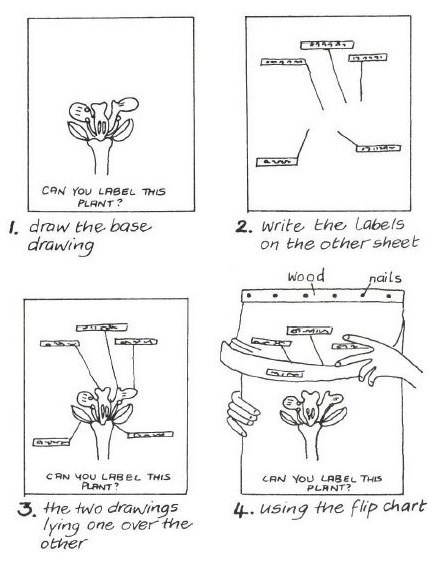 CAN YOU LABEL THIS
PLANT?
1. draw the base
drawing
2. write the labels
on the other sheet
CAN YOU LABEL THIS
PLANT?
3. the two drawings
lying one over the
other
wood nails
CAN YOU LABEL THIS
PLANT?
4. using the flip chart